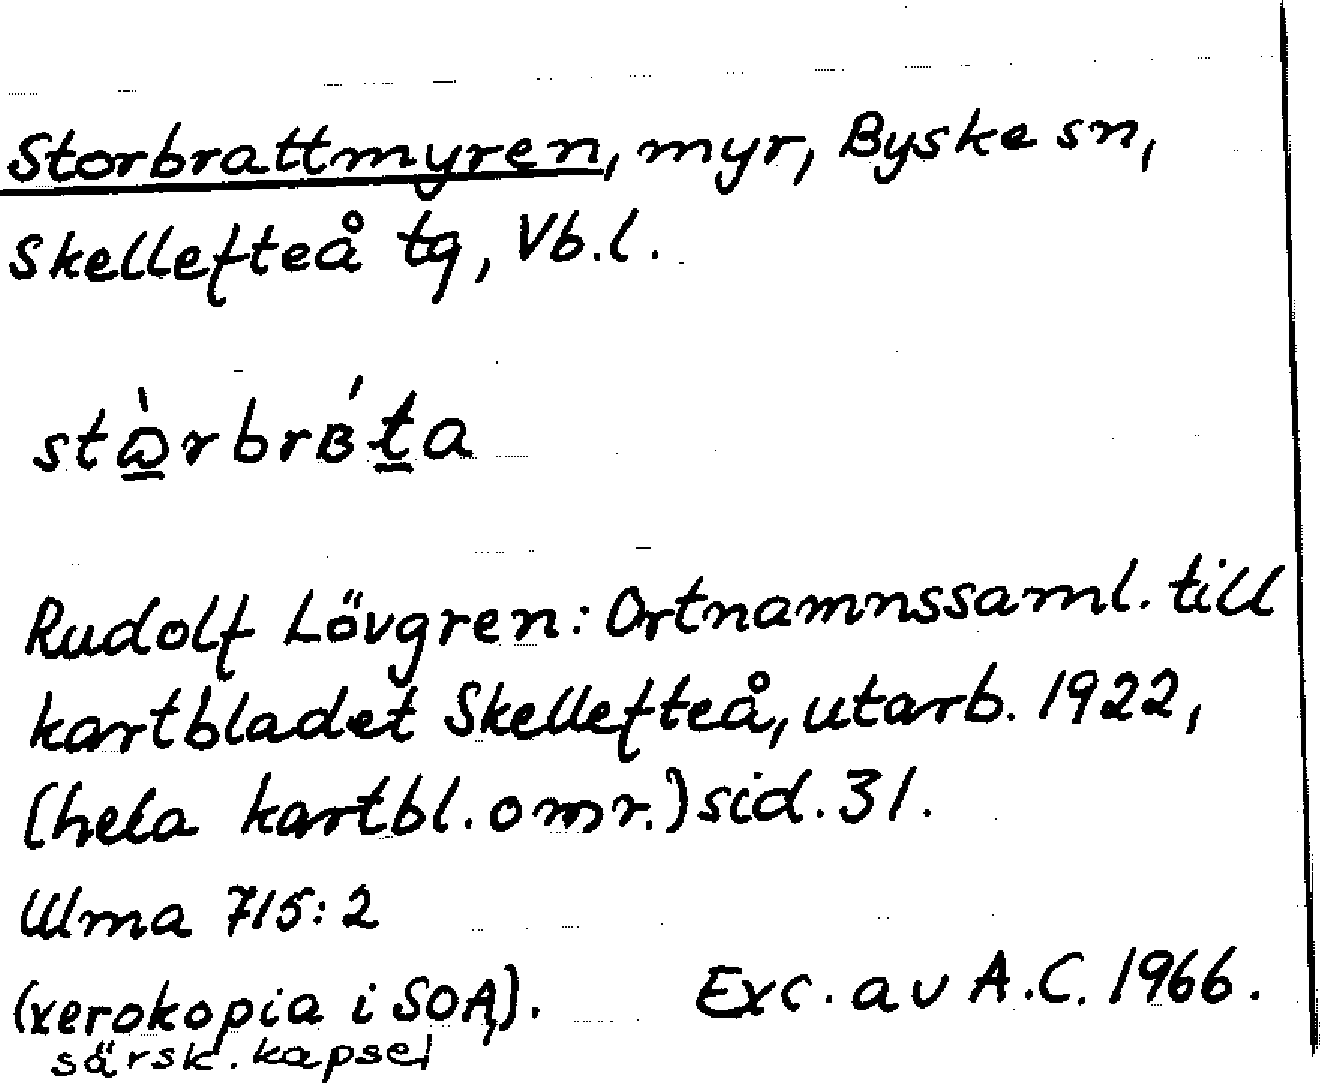 Storbrattmyren, myr, Byske sn,
Skellefteå tg, Vb.l.
Rudolf Lövgren: Ortnamnssaml. till
kartbladet Skellefteå, utarb. 1922,
(hela kartbl. omr.) sid. 31.
Ulma 715:2
(xerokopia i SOA,). Exc. av A.C. 1966.
särsk. kapsel